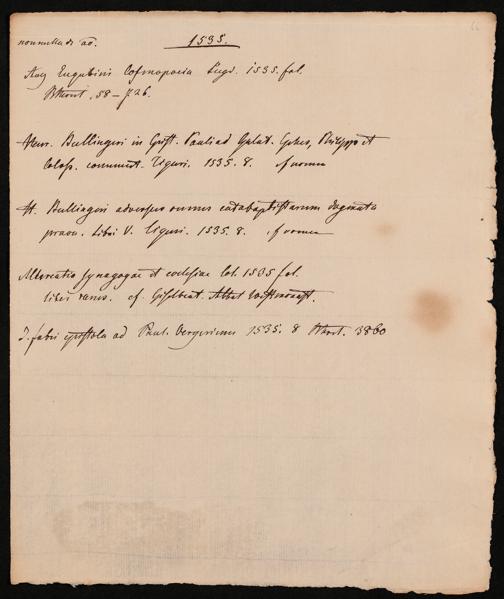 nonnulla de ao. 1535.
Aug Eugubini Cosmopoeia Lugd. 1535. fol.
58 – 726.
Henr. Bullingeri in Epist. Pauli ad Galat. Ephes, Philipp et
Coloss. comment. Tiguri. 1535. 8.
H. Bullingeri adversus omnia catabaptistarum dogmata
prava. Libri V. Tiguri. 1535. 8.
Altercatio synagogae et ecclesiae Col. 1535 fol.
liber rarus. cf. Gislebert. Abbat
J. Fabri epistola ad Paul. Vergerium 1535. 8 3860